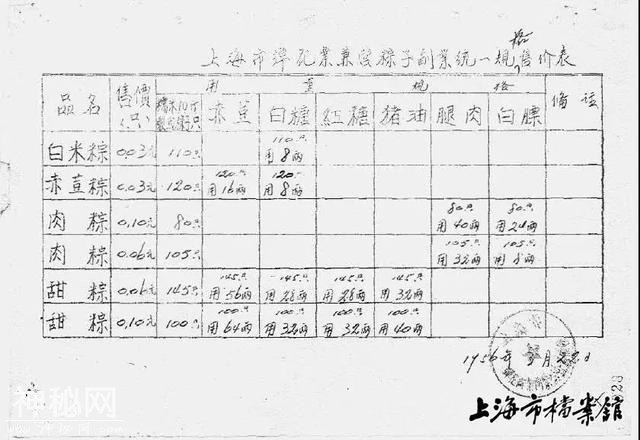 上海市糕兼营粽子副业统一规格售价表
品名 售價(一只) 糯米10斤製成粽子只 用量規格 備註
赤荳 白糖 紅糖 豬油 腿肉 白膘
白米粽 0.03元 110只 110只用8兩
赤荳粽 0.03元 120只 120只用16兩 120只用8兩
肉粽 0.10元 80只 80只用40兩 80只用24兩
肉粽 0.06元 105只 105只用32兩 105只用8兩
甜粽 0.06元 145只 145只用56兩 145只用28兩 145只用28兩 145只用32兩
甜粽 0.10元 100只 100只用64兩 100只用32兩 100只用32兩 100只用40兩
1956年 月22日
上海市檔案館
神秘网